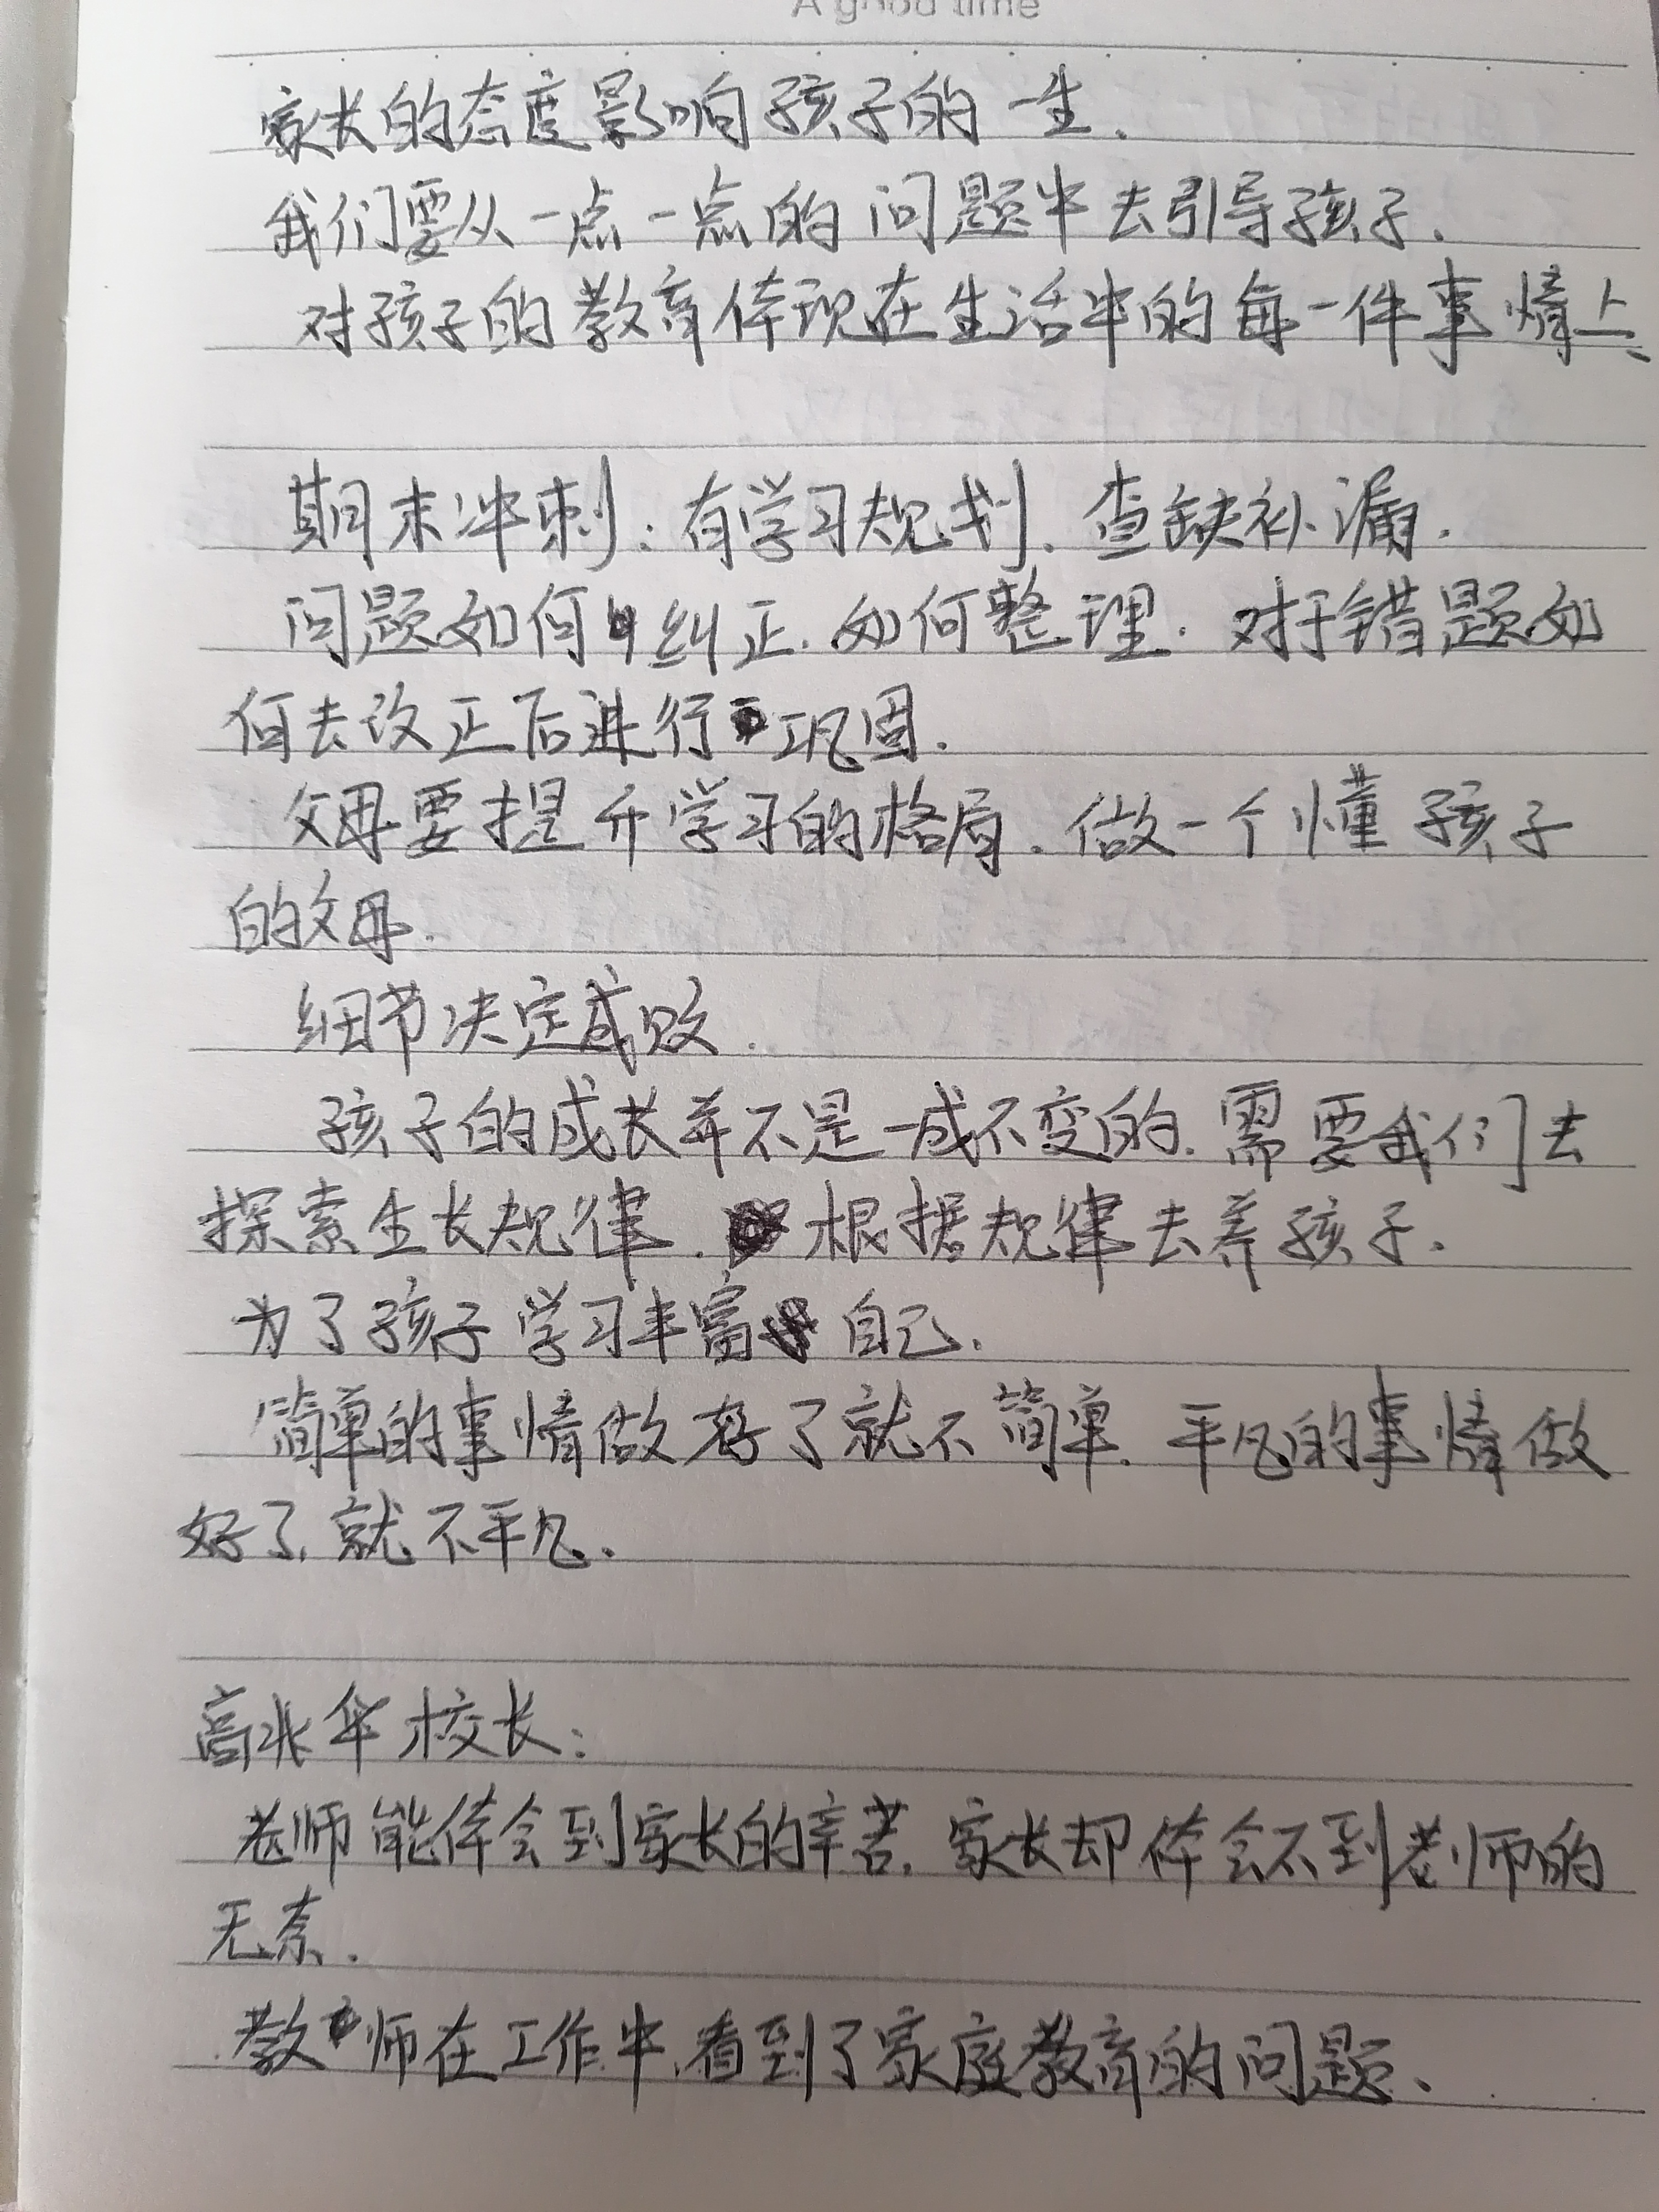 A good time
家长的态度影响孩子的一生.
我们要从一点一点的问题中去引导孩子.
对孩子的教育体现在生活中的每一件事情上、
期末冲刺：有学习规划、查缺补漏.
问题如何纠正.如何整理.对于错题如
何去改正后进行巩固.
父母要提升学习的格局.做一个懂孩子
的父母.
细节决定成败.
孩子的成长并不是一成不变的.需要我们去
探索生长规律.根据规律去养孩子.
为了孩子学习丰富自己.
简单的事情做好了就不简单.平凡的事情做
好了.就不平凡.
高兆华校长：
老师能体会到家长的辛苦.家长却体会不到老师的
无奈.
教师在工作中.看到了家庭教育的问题、